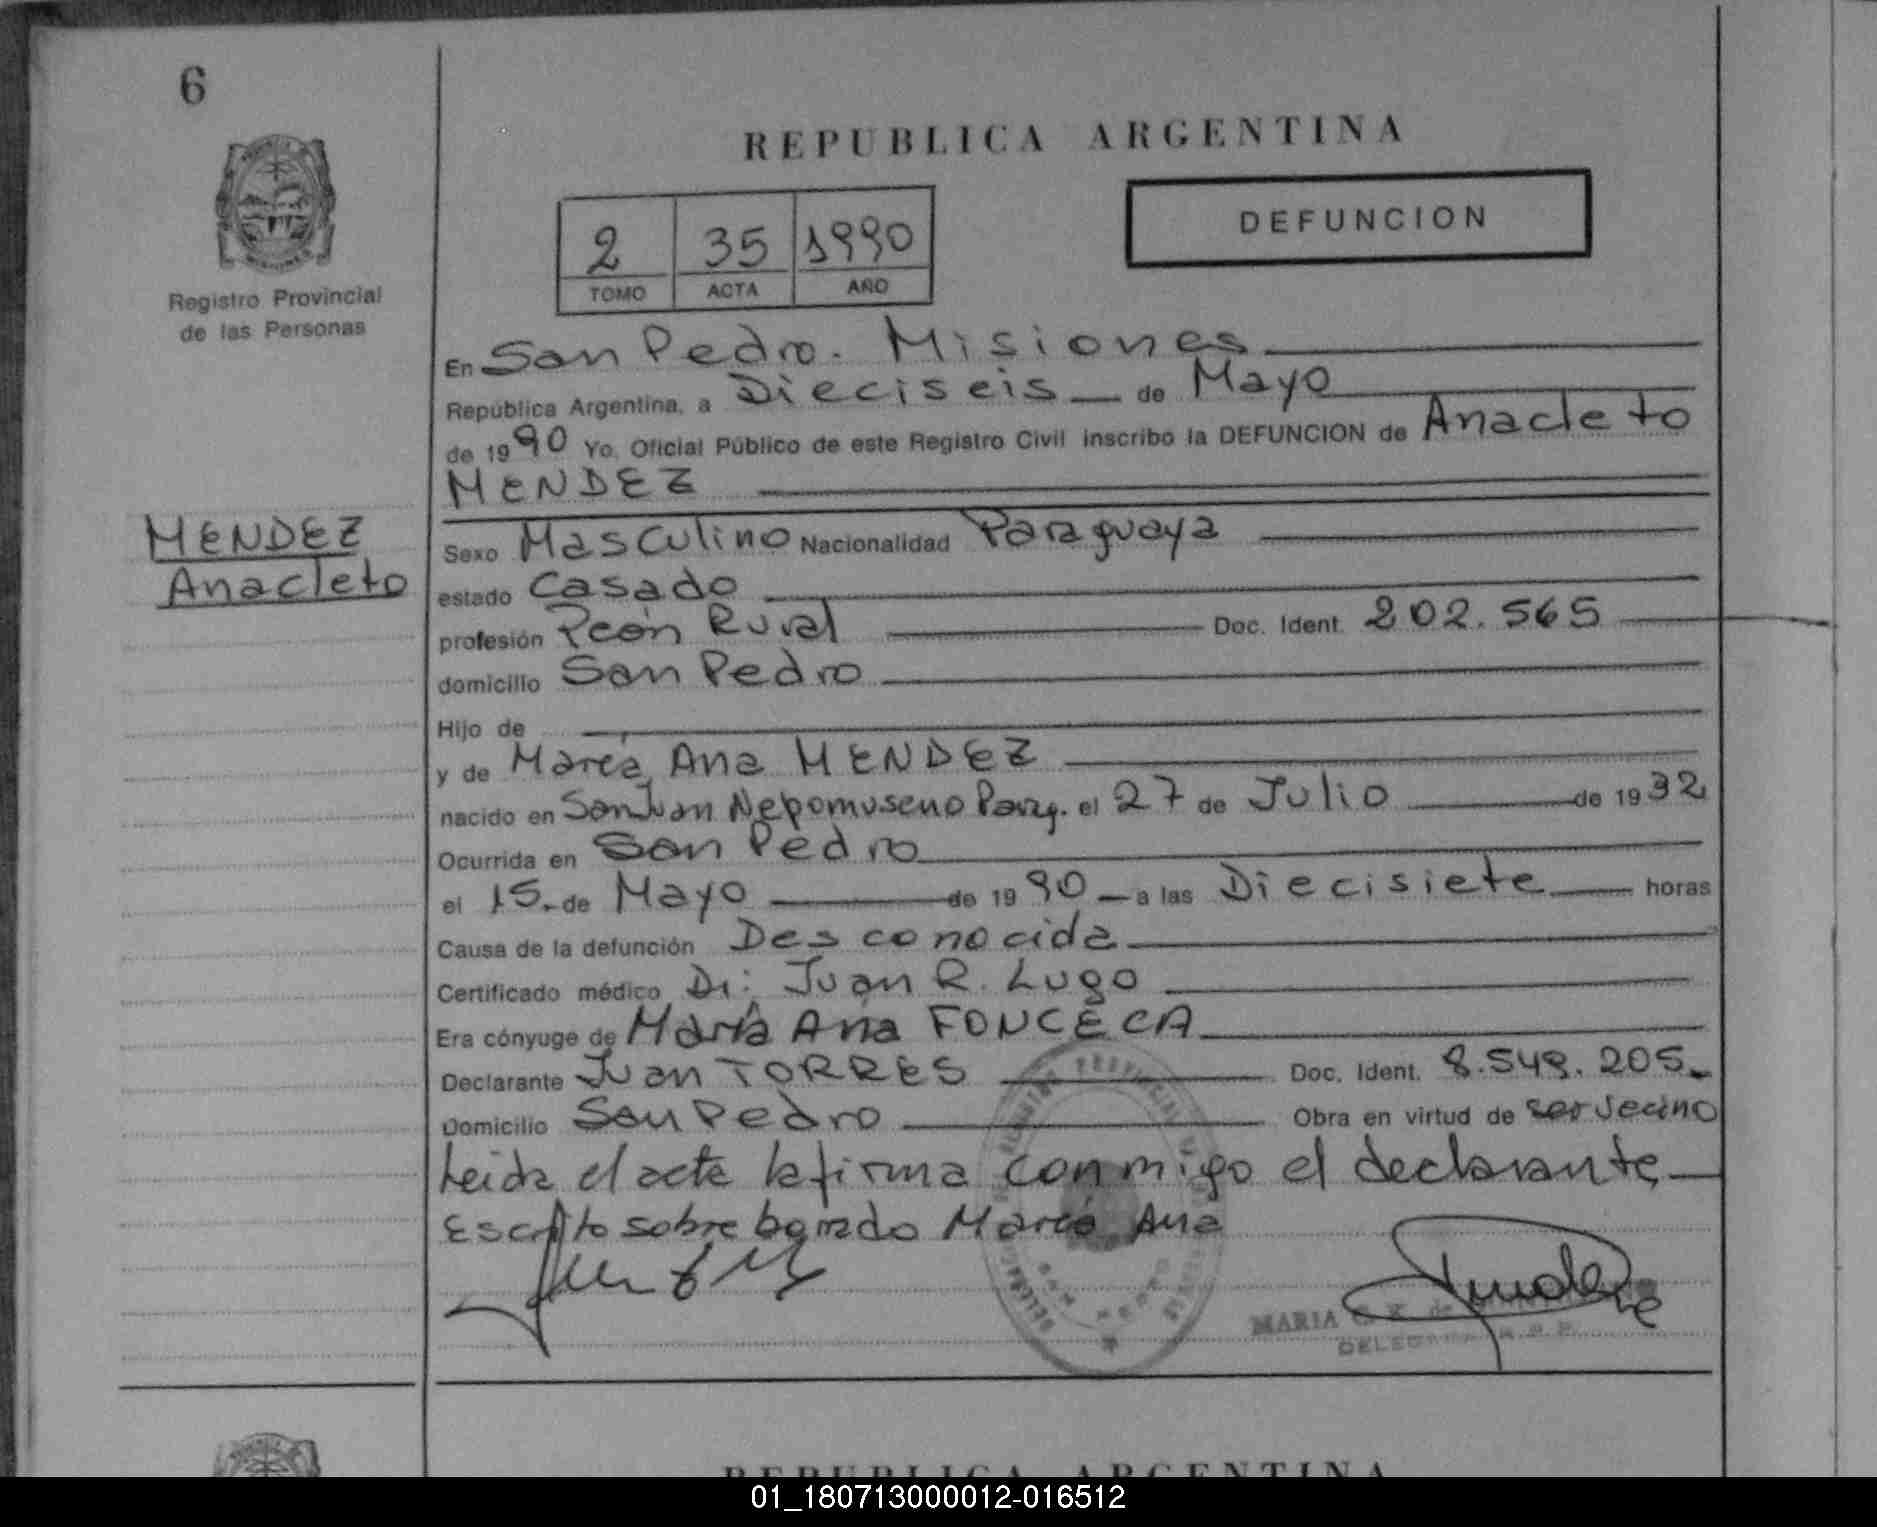 6
REPUBLICA ARGENTINA
2 35 1990
TOMO ACTA AÑO
DEFUNCION
Registro Provincial
de las Personas
En San Pedro. Misiones
República Argentina, a Dieciseis de Mayo
de 1990 Yo, Oficial Público de este Registro Civil inscribo la DEFUNCION de Anacleto
MENDEZ
MENDEZ
Anacleto
Sexo Masculino Nacionalidad Paraguaya
estado Casado
profesión Peón Rural Doc. Ident. 202.565
domicilio San Pedro
Hijo de
y de María Ana MENDEZ
nacido en San Juan Nepomuseno Parag. el 27 de Julio de 1932
Ocurrida en San Pedro
el 15. de Mayo de 1990 a las Diecisiete horas
Causa de la defunción Desconocida
Certificado médico Dr: Juan R. Lugo
Era cónyuge de María Ana FONCECA
Declarante Juan TORRES Doc. Ident. 8.549.205.
Domicilio San Pedro Obra en virtud de ser vecino
Leida el acta la firma conmigo el declarante
Escrito sobre borrado María Ana
MARIA
REPUBLICA ARGENTINA
01_180713000012-016512